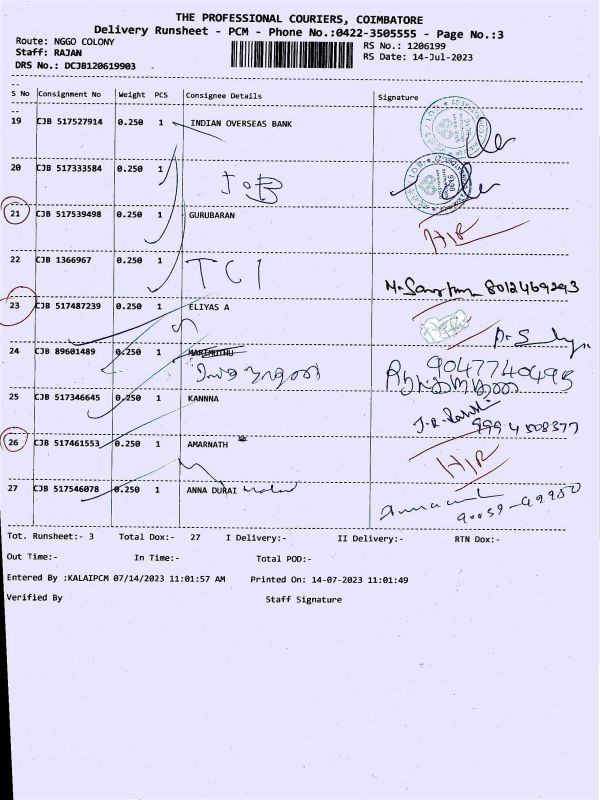 THE PROFESSIONAL COURIERS, COIMBATORE
Delivery Runsheet - PCM - Phone No.:0422-3505555 - Page No.:3
Route: NGGO COLONY RS No.: 1206199
Staff: RAJAN RS Date: 14-Jul-2023
DRS No.: DCJB120619903
S No Consignment No Weight PCS Consignee Details Signature
19 CJB 517527914 0.250 1 INDIAN OVERSEAS BANK
20 CJB 517333584 0.250 1 IOB
21 CJB 517539498 0.250 1 GURUBARAN
22 CJB 1366967 0.250 1 TCI 8012469293
23 CJB 517487239 0.250 1 ELIYAS A
24 CJB 89601489 0.250 1 MARIMUTHU 9047740495
25 CJB 517346645 0.250 1 KANNNA
26 CJB 517461553 0.250 1 AMARNATH
27 CJB 517546078 0.250 1 ANNA DURAI
Tot. Runsheet:- 3 Total Dox:- 27 I Delivery:- II Delivery:- RTN Dox:-
Out Time:- In Time:- Total POD:-
Entered By :KALAIPCM 07/14/2023 11:01:57 AM Printed On: 14-07-2023 11:01:49
Verified By Staff Signature